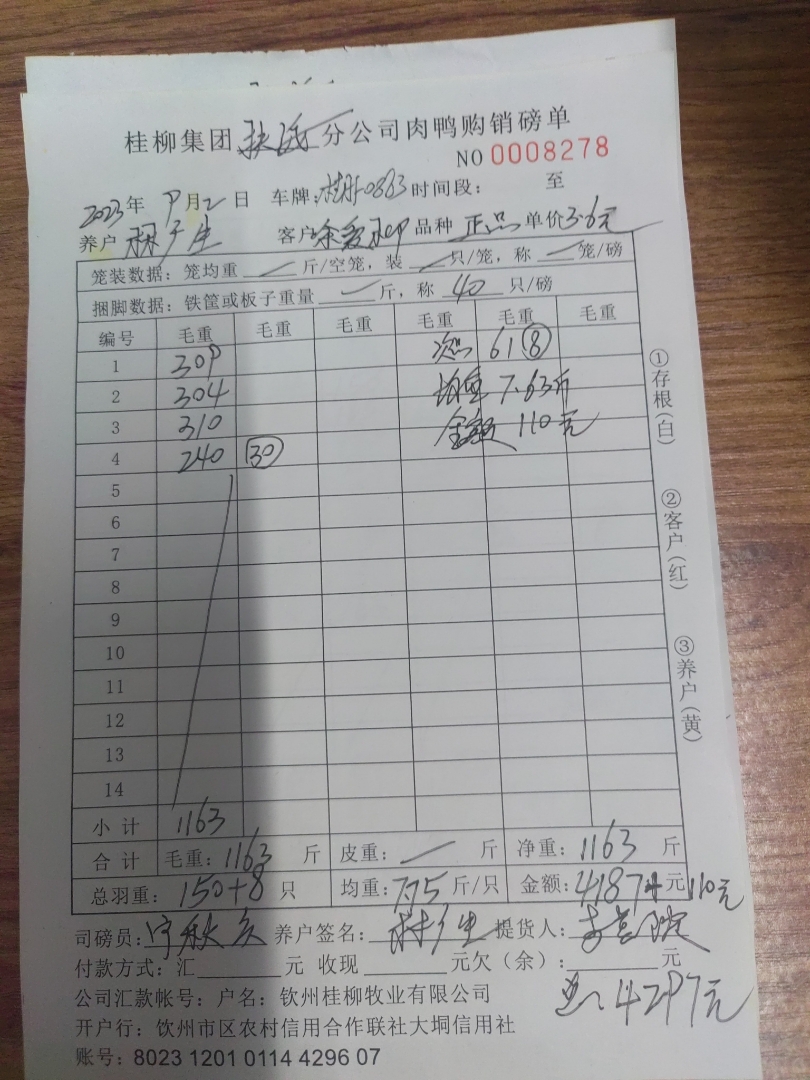 桂柳集团 分公司肉鸭购销磅单
NO 0008278
2023年 9月2日 车牌: 0863 时间段: 至
养户 客户 品种 正品 单价3.6元
笼装数据: 笼均重 斤/空笼, 装 只/笼, 称 笼/磅
捆脚数据: 铁筐或板子重量 斤, 称 40 只/磅
编号 毛重 毛重 毛重 毛重 毛重 毛重
1 309 次品 61 ⑧
2 304 均重 7.63斤
3 310 金额 110元
4 240 ㉚
5
6
7
8
9
10
11
12
13
14
小计 1163
合计 毛重: 1163 斤 皮重: 斤 净重: 1163 斤
总羽重: 150+8 只 均重: 7.75 斤/只 金额: 4187+ 元 110元
司磅员: 养户签名: 提货人:
付款方式: 汇 元 收现 元欠(余): 元
4297元
公司汇款帐号: 户名: 钦州桂柳牧业有限公司
开户行: 钦州市区农村信用合作联社大垌信用社
账号: 8023 1201 0114 4296 07
①存根(白)
②客户(红)
③养户(黄)